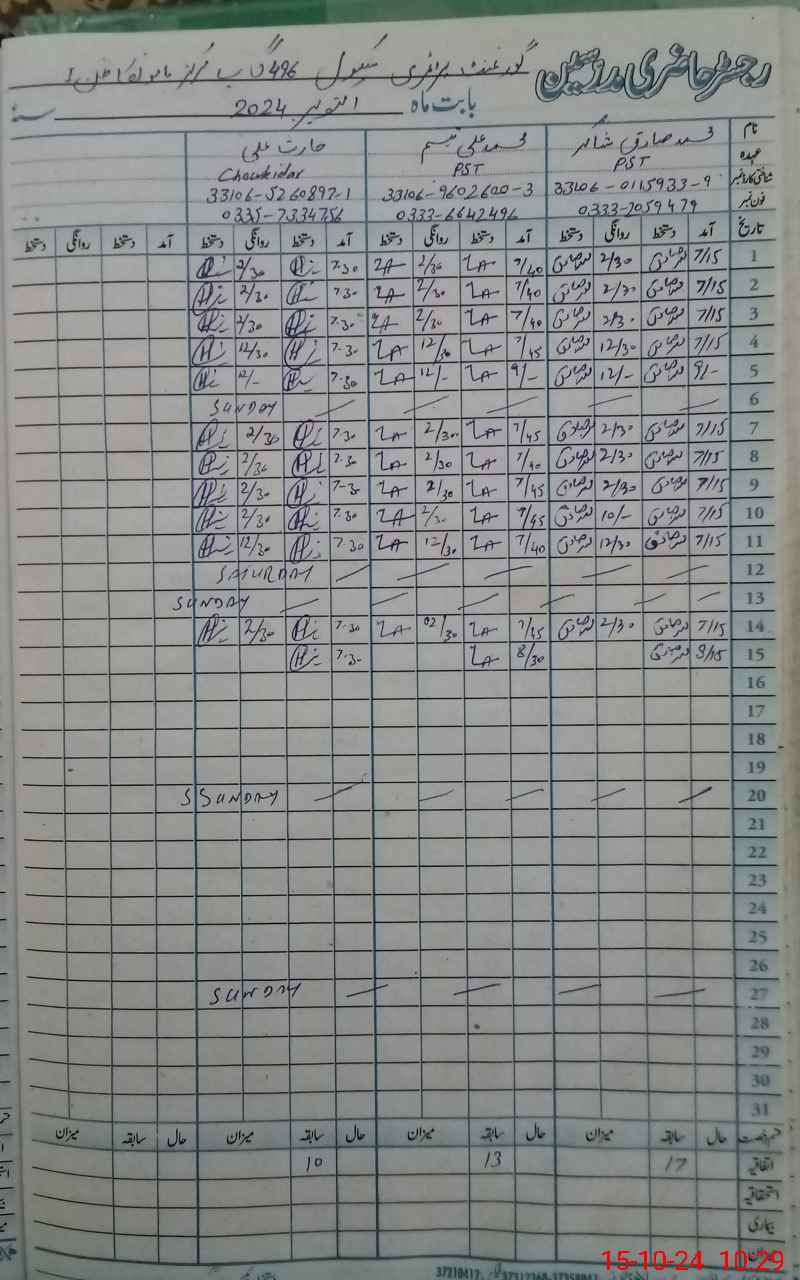 رجسٹر حاضری مدرسین
گورنمنٹ پرائمری سکول 496 گ ب مرکز ماموں کانجن I
بابت ماہ اکتوبر 2024 سنہ
نام محمد صادق شاکر محمد علی تبسم حارث علی
عہدہ PST PST Chowkidar
شناختی کارڈ نمبر 33106-0115933-9 33106-9602600-3 33106-5260897-1
فون نمبر 0333-7059479 0333-6642496 0335-7334756
تاریخ آمد دستخط روانگی دستخط آمد دستخط روانگی دستخط آمد دستخط روانگی دستخط آمد دستخط روانگی دستخط
1 7/15 2/30 7/40 ZA 2/30 ZA 7.30 2/30
2 7/15 2/30 7/40 ZA 2/30 ZA 7.30 2/30
3 7/15 2/30 7/40 ZA 2/30 ZA 7.30 2/30
4 7/15 12/30 7/45 ZA 12/30 ZA 7.30 12/30
5 9/- 12/- 9/- ZA 12/- ZA 7.30 12/-
6 SUNDAY
7 7/15 2/30 7/45 ZA 2/30 ZA 7.30 2/30
8 7/15 2/30 7/40 ZA 2/30 ZA 7.30 2/30
9 7/15 2/30 7/45 ZA 2/30 ZA 7-30 2/30
10 7/15 10/- 7/45 ZA 2/30 ZA 7.30 2/30
11 7/15 12/30 7/40 ZA 12/30 ZA 7.30 12/30
12 SATURDAY
13 SUNDAY
14 7/15 2/30 7/45 ZA 02/30 ZA 7.30 2/30
15 8/15 8/30 ZA 7.30
16
17
18
19
20 S SUNDAY
21
22
23
24
25
26
27 SUNDAY
28
29
30
31
قسم رخصت حال سابقہ میزان حال سابقہ میزان حال سابقہ میزان حال سابقہ میزان
اتفاقیہ 17 13 10
استحقاقیہ
بیماری
میزان
15-10-24 10:29